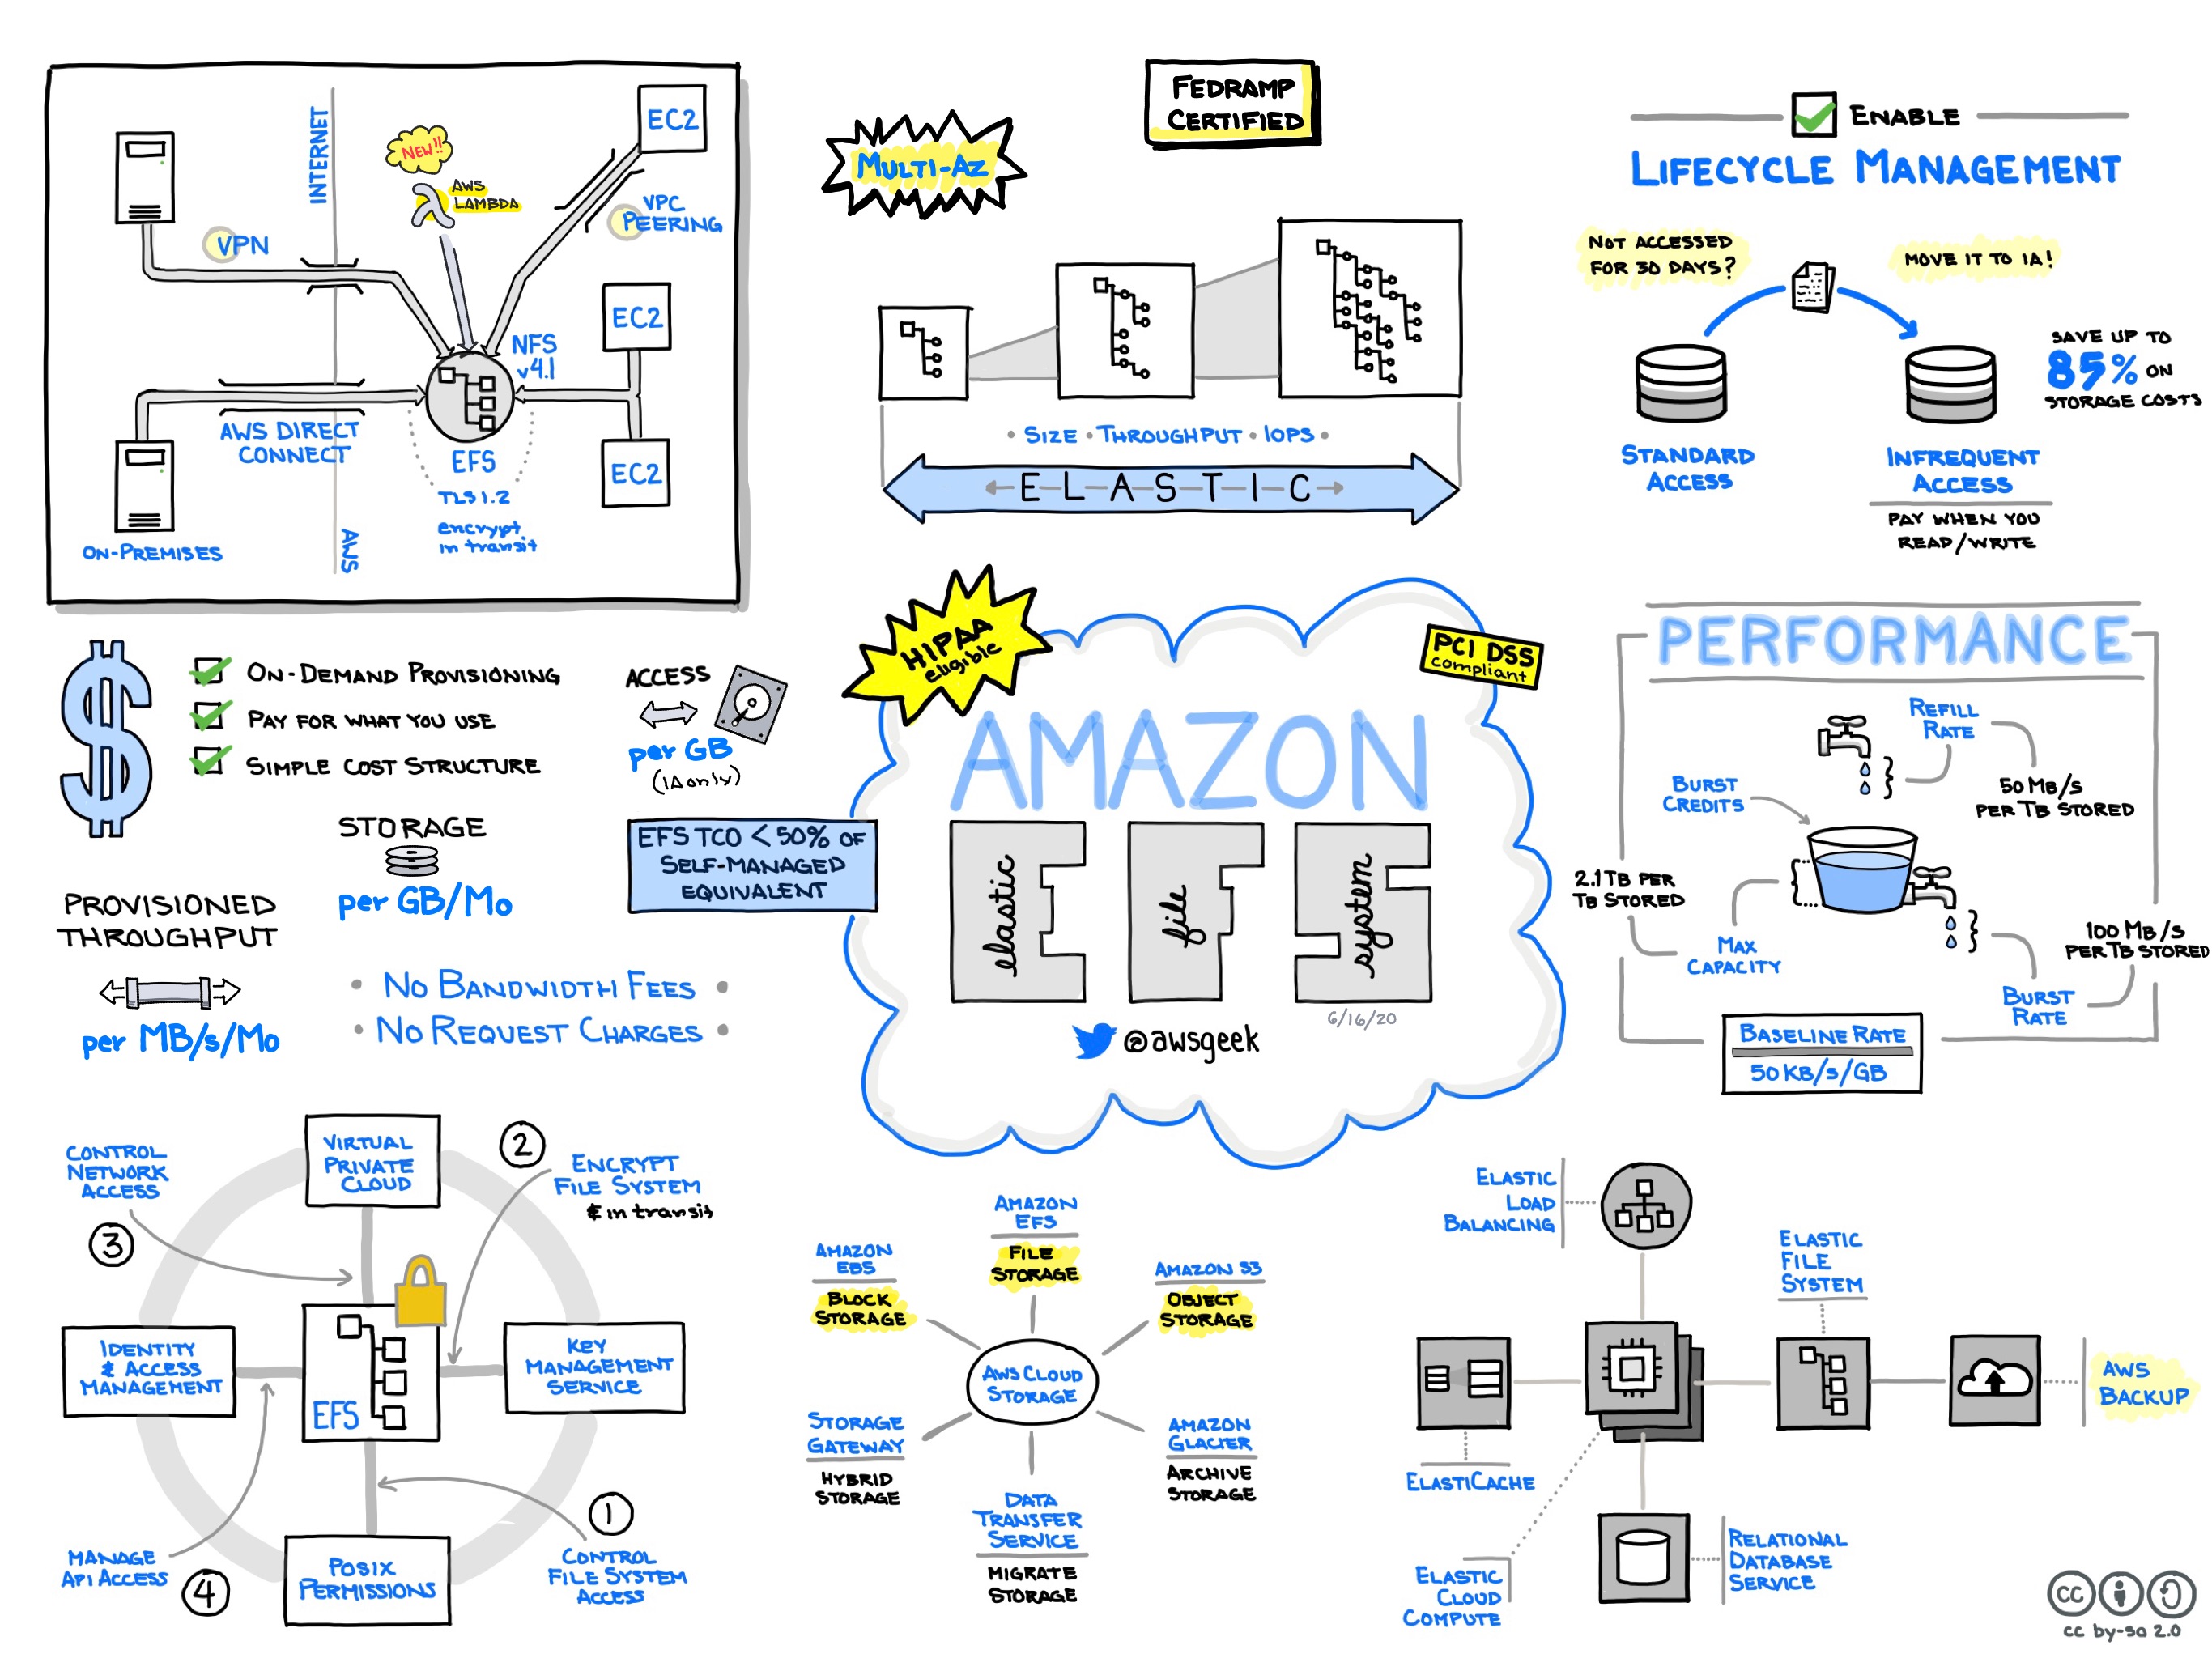 INTERNET
NEW!!
AWS
LAMBDA
EC2
VPC
PEERING
VPN
EC2
NFS
v4.1
AWS DIRECT
CONNECT
EFS
EC2
TLS 1.2
encrypt
in transit
ON-PREMISES
AWS
FEDRAMP
CERTIFIED
MULTI-AZ
• SIZE • THROUGHPUT • IOPS •
ELASTIC
ENABLE
LIFECYCLE MANAGEMENT
NOT ACCESSED
FOR 30 DAYS?
MOVE IT TO IA!
SAVE UP TO
85% ON
STORAGE COSTS
STANDARD
ACCESS
INFREQUENT
ACCESS
PAY WHEN YOU
READ/WRITE
$
ON-DEMAND PROVISIONING
PAY FOR WHAT YOU USE
SIMPLE COST STRUCTURE
ACCESS
per GB
(IA only)
STORAGE
per GB/Mo
EFS TCO < 50% OF
SELF-MANAGED
EQUIVALENT
PROVISIONED
THROUGHPUT
per MB/s/Mo
• NO BANDWIDTH FEES •
• NO REQUEST CHARGES •
HIPAA
eligible
PCI DSS
compliant
AMAZON
elastic
file
system
6/16/20
@awsgeek
PERFORMANCE
REFILL
RATE
50 MB/S
PER TB STORED
BURST
CREDITS
2.1 TB PER
TB STORED
MAX
CAPACITY
100 MB/S
PER TB STORED
BURST
RATE
BASELINE RATE
50 KB/S/GB
VIRTUAL
PRIVATE
CLOUD
CONTROL
NETWORK
ACCESS
3
2
ENCRYPT
FILE SYSTEM
& in transit
IDENTITY
& ACCESS
MANAGEMENT
EFS
KEY
MANAGEMENT
SERVICE
MANAGE
API ACCESS
4
POSIX
PERMISSIONS
1
CONTROL
FILE SYSTEM
ACCESS
AMAZON
EFS
FILE
STORAGE
AMAZON
EBS
BLOCK
STORAGE
AMAZON S3
OBJECT
STORAGE
AWS CLOUD
STORAGE
STORAGE
GATEWAY
HYBRID
STORAGE
AMAZON
GLACIER
ARCHIVE
STORAGE
DATA
TRANSFER
SERVICE
MIGRATE
STORAGE
ELASTIC
LOAD
BALANCING
ELASTIC
FILE
SYSTEM
AWS
BACKUP
ELASTICACHE
ELASTIC
CLOUD
COMPUTE
RELATIONAL
DATABASE
SERVICE
cc
cc by-sa 2.0